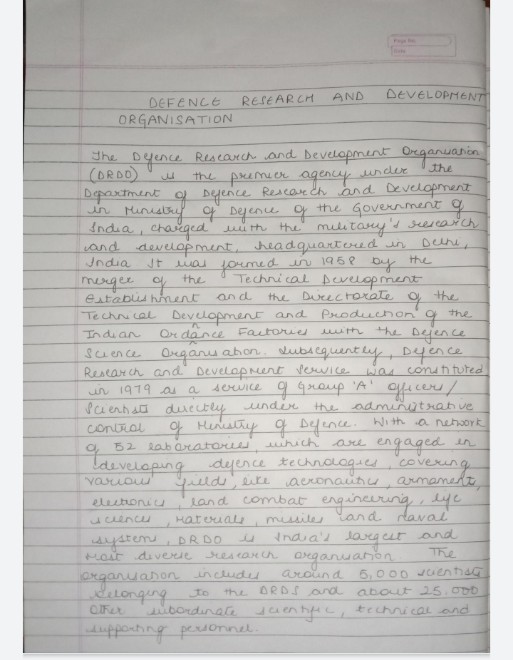 Page No.
Date
DEFENCE RESEARCH AND DEVELOPMENT
ORGANISATION
The Defence Research and Development Organisation
(DRDO) is the premier agency under the
Department of Defence Research and Development
in Ministry of Defence of the Government of
India, charged with the military's research
and development, headquartered in Delhi,
India It was formed in 1958 by the
merger of the Technical Development
Establishment and the Directorate of the
Technical Development and Production of the
Indian Ordance Factories with the Defence
Science Organisation. Subsequently, Defence
Research and Development Service was constituted
in 1979 as a service of Group 'A' officers/
Scientists directly under the administrative
control of Ministry of Defence. With a network
of 52 laboratories, which are engaged in
developing defence technologies, covering
various fields, like aeronautics, armament,
electronics, land combat engineering, life
sciences, materials, missiles and naval
system, DRDO is India's largest and
most diverse research organisation. The
organisation includes around 5,000 scientists
belonging to the DRDS and about 25,000
other subordinate scientific, technical and
supporting personnel.